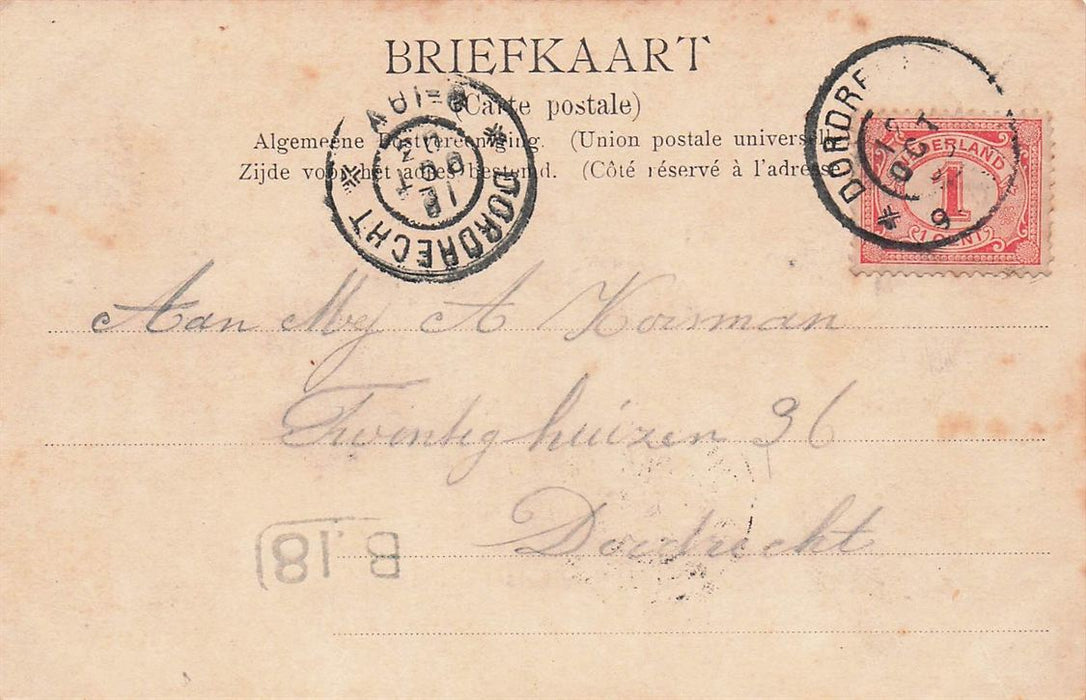 BRIEFKAART
(Carte postale)
Algemeene Postvereeniging. (Union postale universelle)
Zijde voor het adres bestemd. (Côté réservé à l'adresse)
DORDRECHT
DORDRE
OCT
NEDERLAND
1
1 CENT
Aan Mej A Koisman
Twintighuizen 36
Dordrecht
B.18)